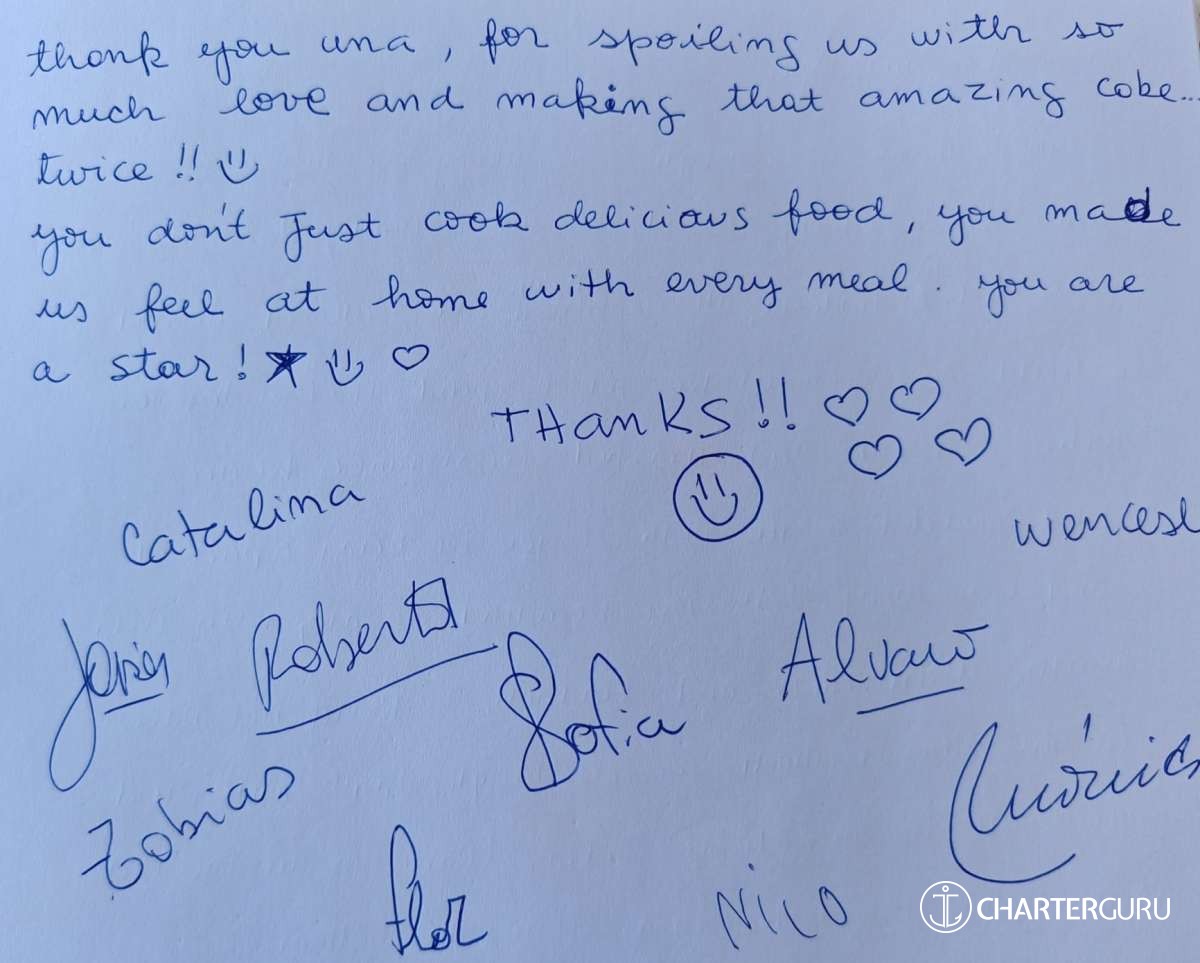 thank you una, for spoiling us with so
much love and making that amazing cake...
twice!! 
you don't Just cook delicious food, you made
us feel at home with every meal. you are
a star! ★ ♡
THanKS!! ♡ ♡ ♡ ♡
Catalina
wencesl
Javier Roberta Sofia Alvaro
Tobias Mónica
flor Nico
CHARTERGURU